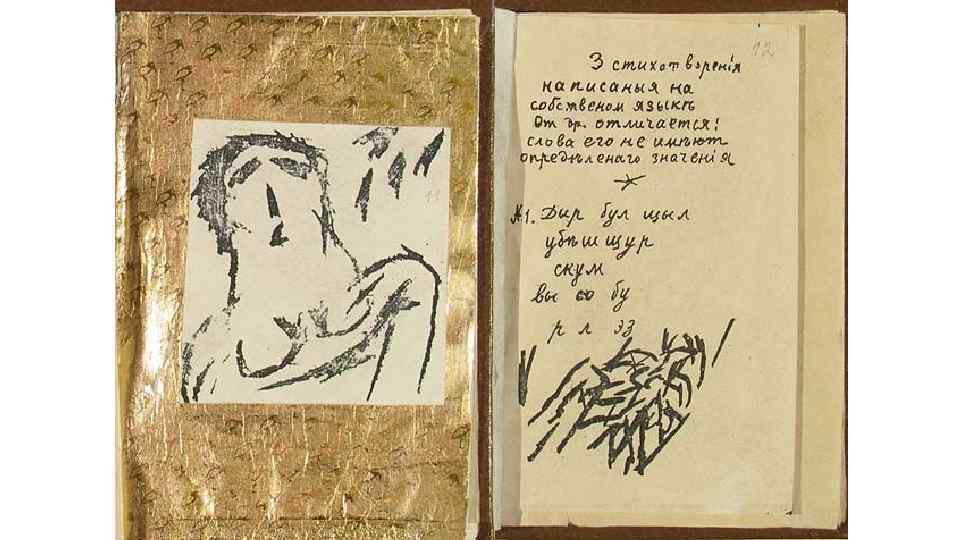 11
12
3 стихотворенія
написаныя на
собственом языкѣ
От др. отличается:
слова его не имѣют
опредѣленаго значенія
*
№1. Дыр бул щыл
убѣшщур
скум
вы со бу
р л эз